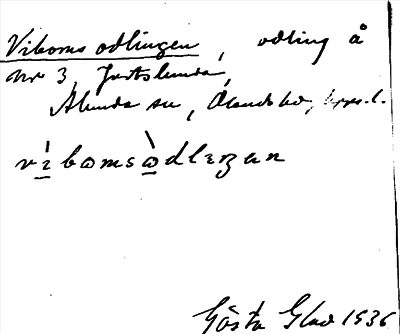 Viboms odlingen, odling å
nr 3, Jortslunda,
Alunda sn, Olands hd, Upps. l.
vìbomsòdleŋan
Gösta Glad 1936